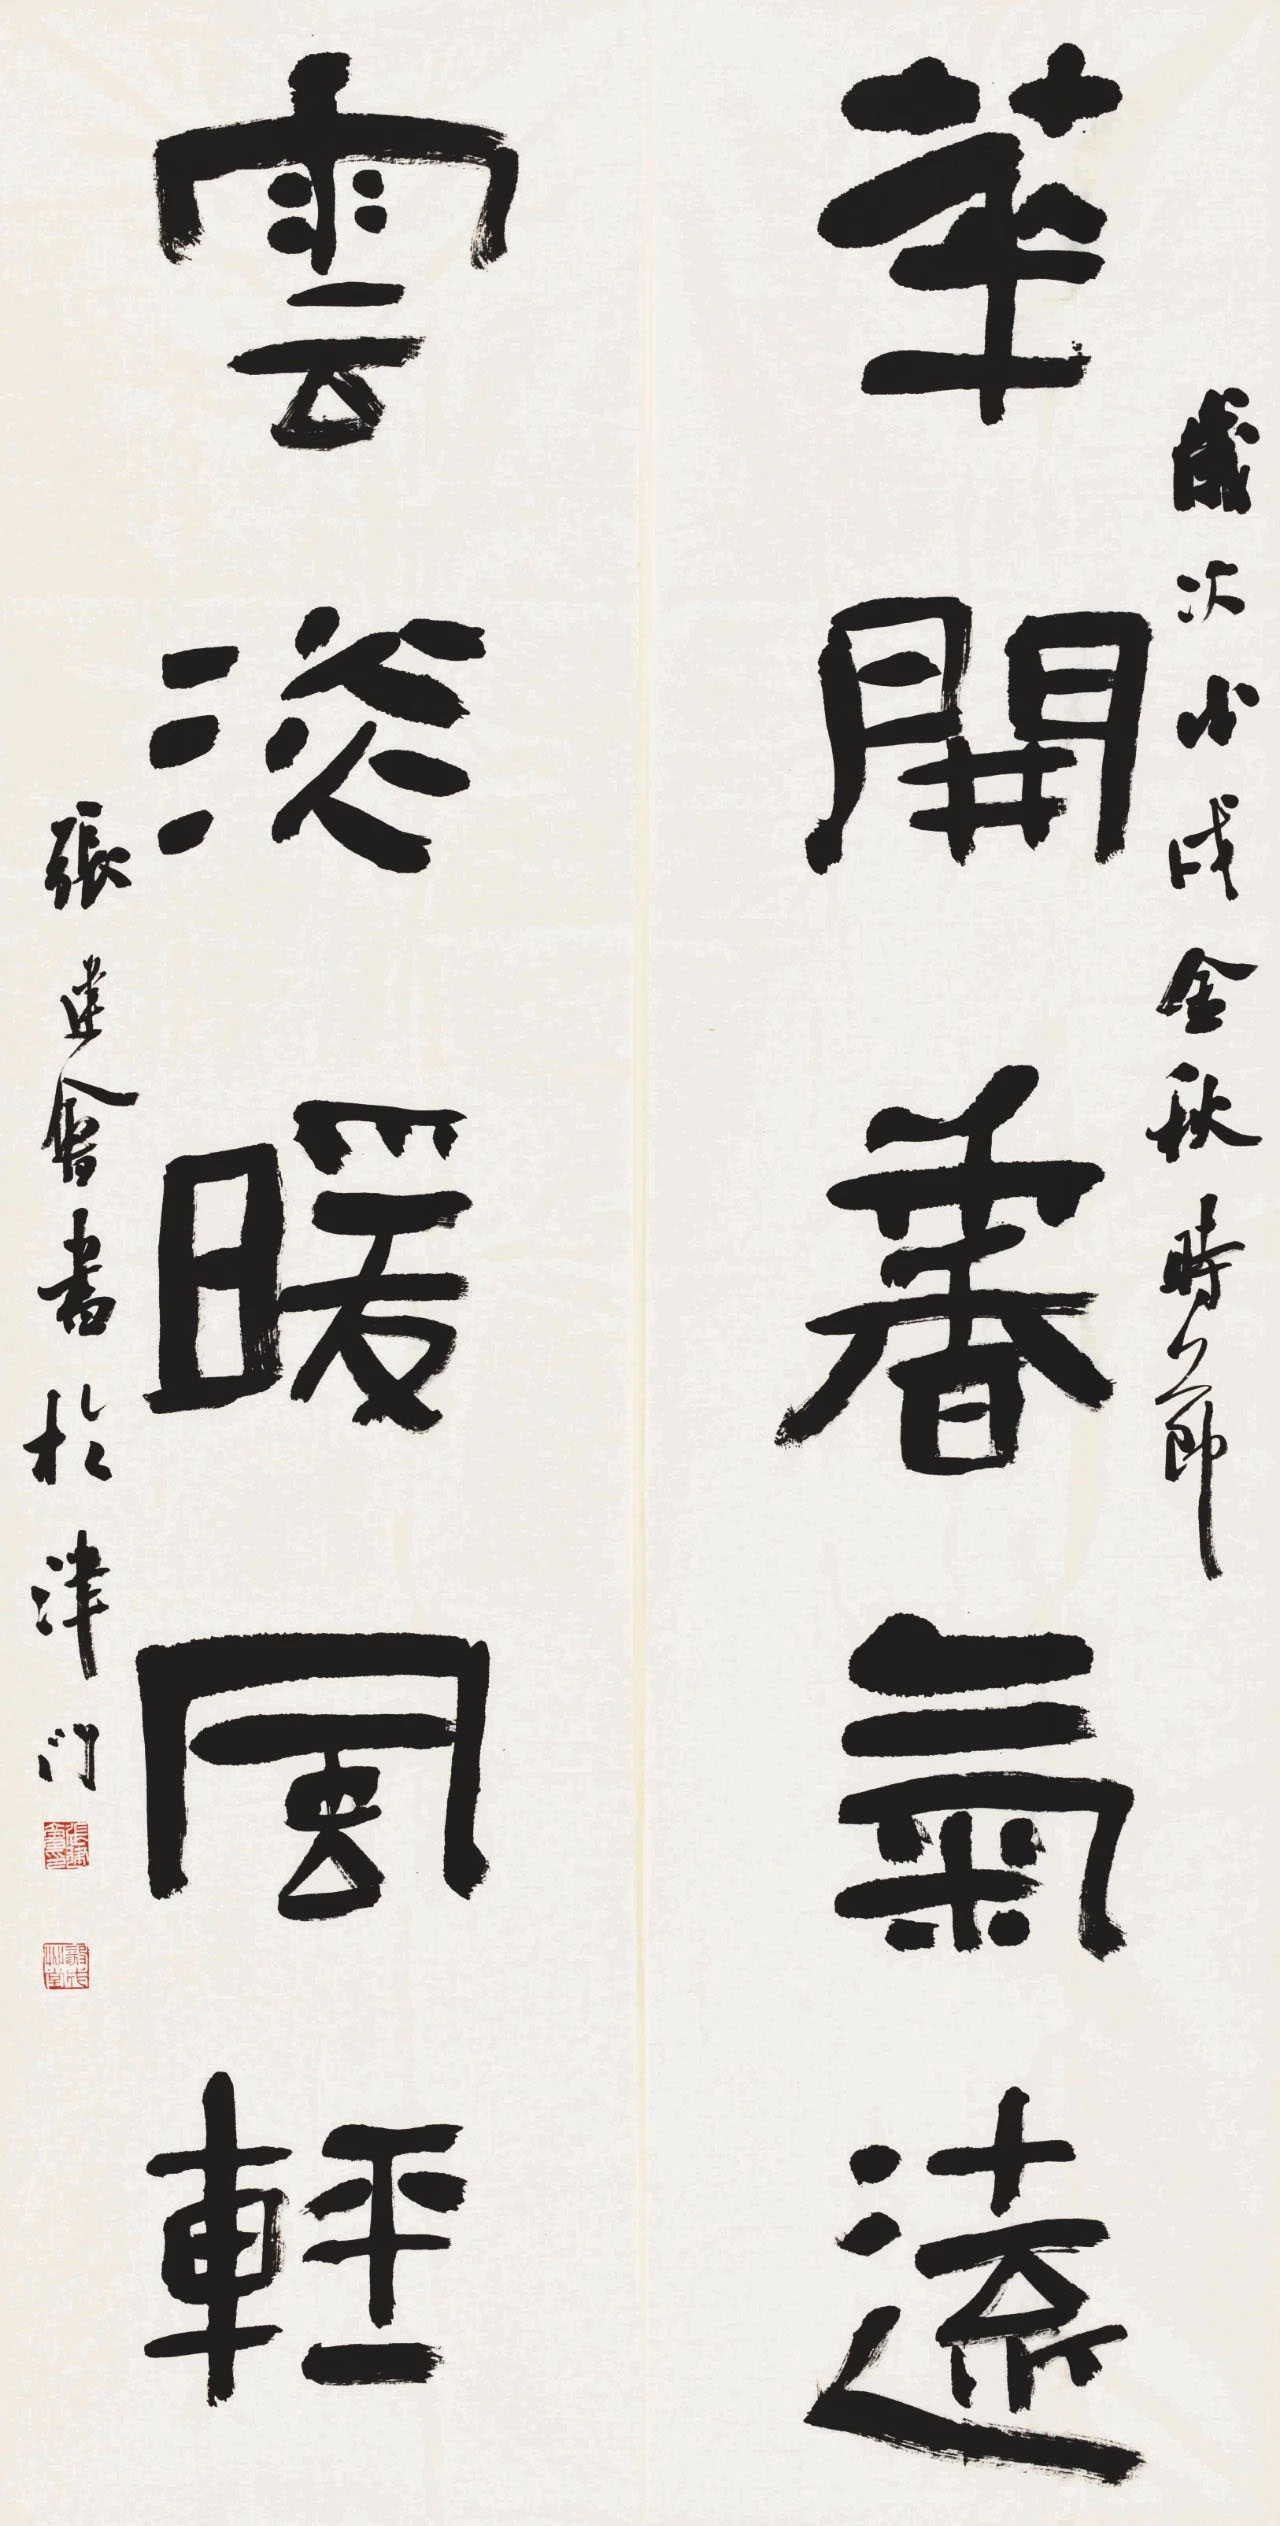 華開香氣遠
歲次丙戌金秋時節
雲淡暖風輕
張建會書於津門